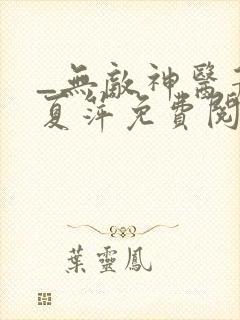 _無敵神醫
夏萍免費閱
葉靈鳳